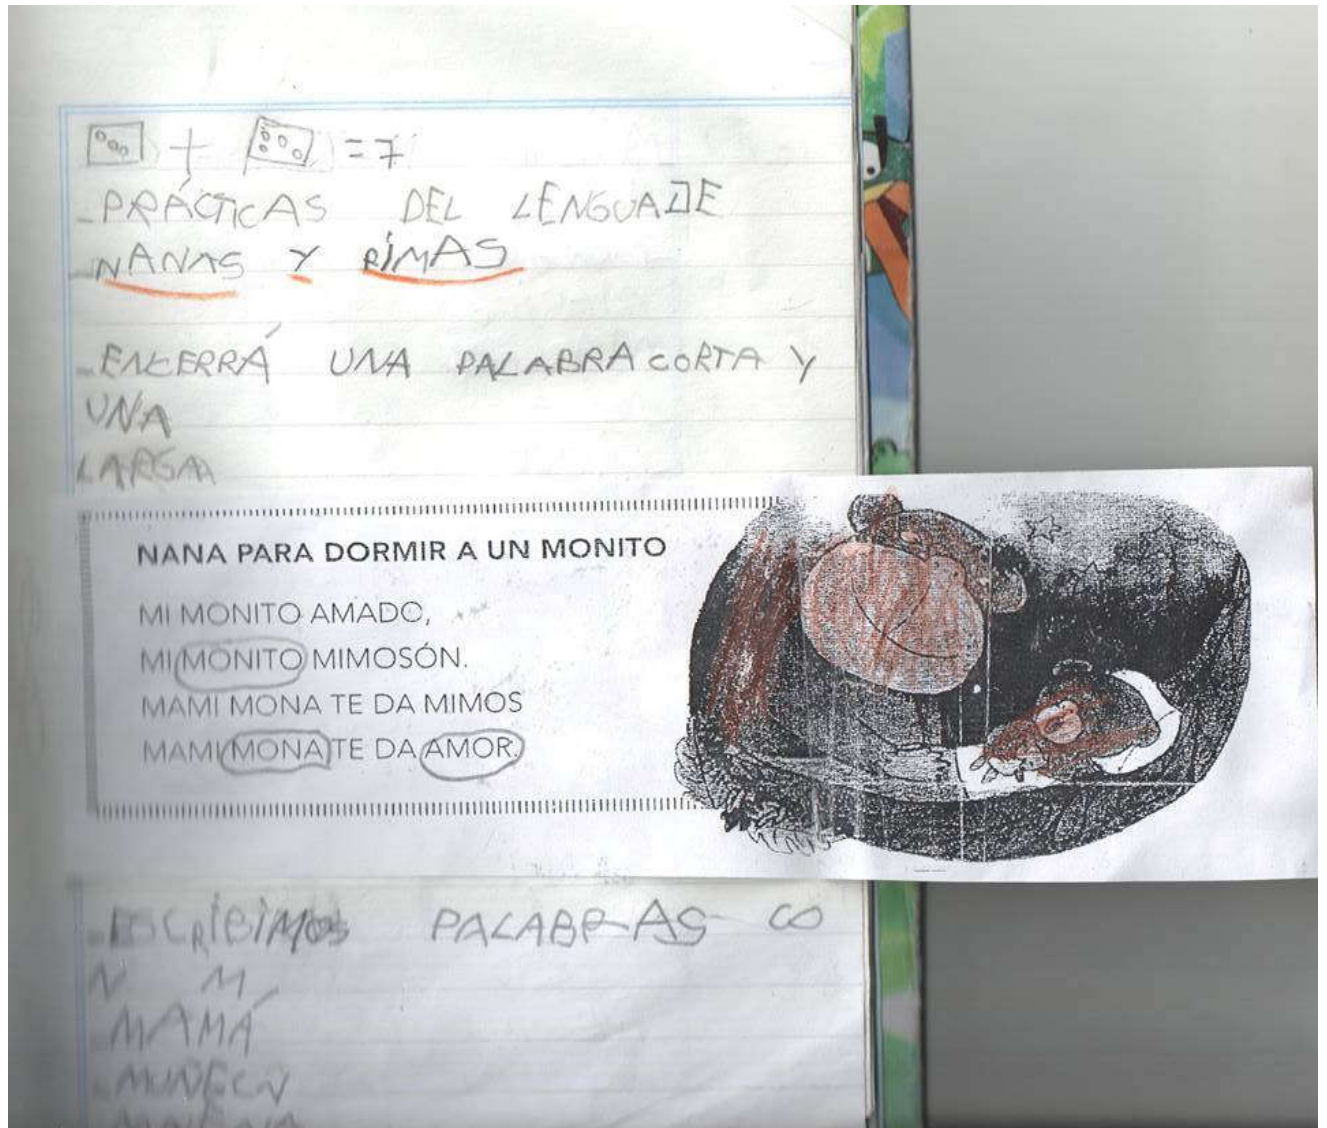 + = 7
-PRÁCTICAS DEL LENGUAJE
-NANAS Y RIMAS
-ENCERRÁ UNA PALABRA CORTA Y
UNA
LARGA
NANA PARA DORMIR A UN MONITO
MI MONITO AMADO,
MI MONITO MIMOSÓN.
MAMI MONA TE DA MIMOS
MAMI MONA TE DA AMOR.
-ESCRIBIMOS PALABRAS CO
N M
MAMÁ